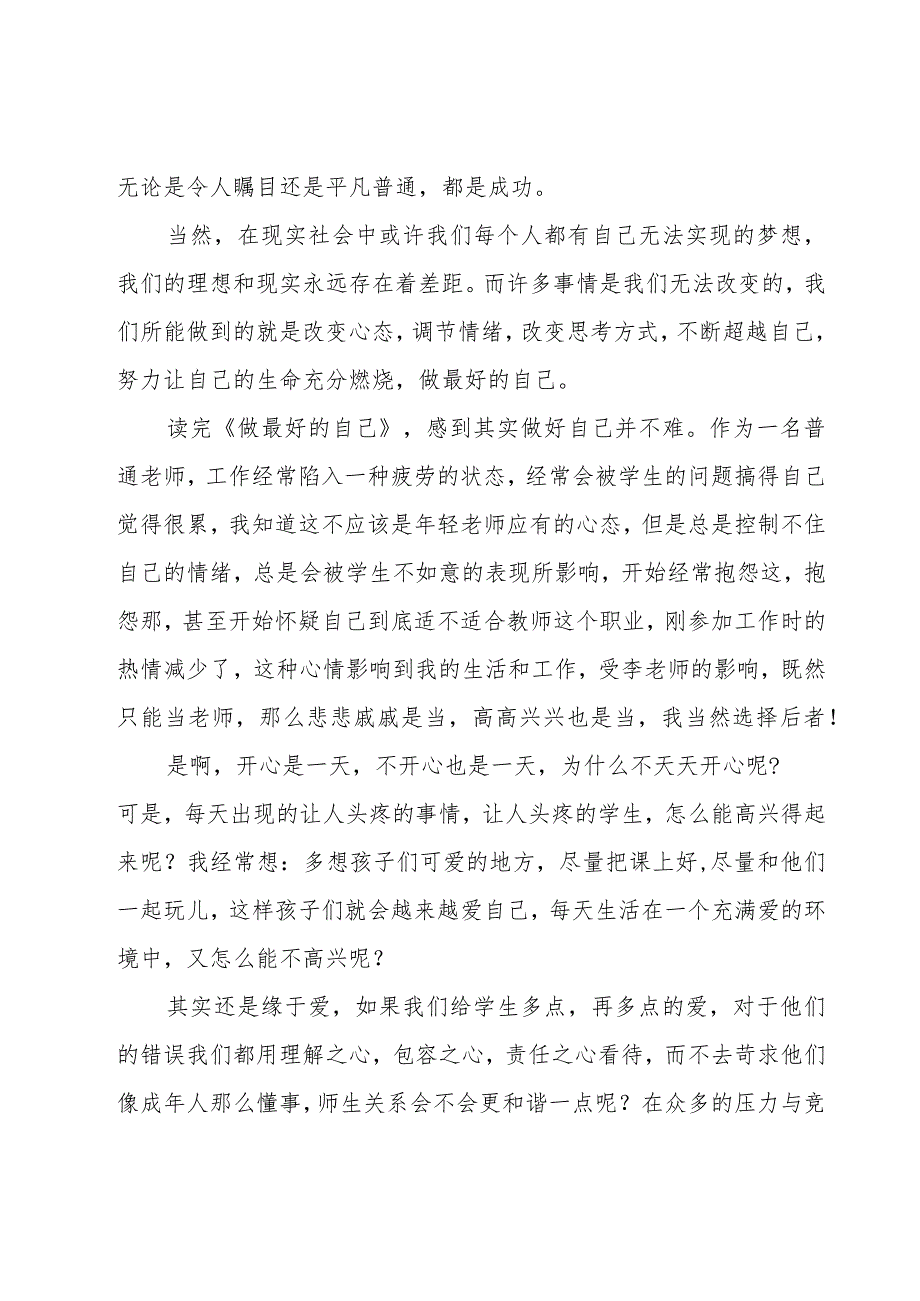 无论是令人瞩目还是平凡普通，都是成功。
当然，在现实社会中或许我们每个人都有自己无法实现的梦想，
我们的理想和现实永远存在着差距。而许多事情是我们无法改变的，我
们所能做到的就是改变心态，调节情绪，改变思考方式，不断超越自己，
努力让自己的生命充分燃烧，做最好的自己。
读完《做最好的自己》，感到其实做好自己并不难。作为一名普
通老师，工作经常陷入一种疲劳的状态，经常会被学生的问题搞得自己
觉得很累，我知道这不应该是年轻老师应有的心态，但是总是控制不住
自己的情绪，总是会被学生不如意的表现所影响，开始经常抱怨这，抱
怨那，甚至开始怀疑自己到底适不适合教师这个职业，刚参加工作时的
热情减少了，这种心情影响到我的生活和工作，受李老师的影响，既然
只能当老师，那么悲悲戚戚是当，高高兴兴也是当，我当然选择后者！
是啊，开心是一天，不开心也是一天，为什么不天天开心呢?
可是，每天出现的让人头疼的事情，让人头疼的学生，怎么能高兴得起
来呢？我经常想：多想孩子们可爱的地方，尽量把课上好,尽量和他们
一起玩儿，这样孩子们就会越来越爱自己，每天生活在一个充满爱的环
境中，又怎么能不高兴呢？
其实还是缘于爱，如果我们给学生多点，再多点的爱，对于他们
的错误我们都用理解之心，包容之心，责任之心看待，而不去苛求他们
像成年人那么懂事,师生关系会不会更和谐一点呢？在众多的压力与竞